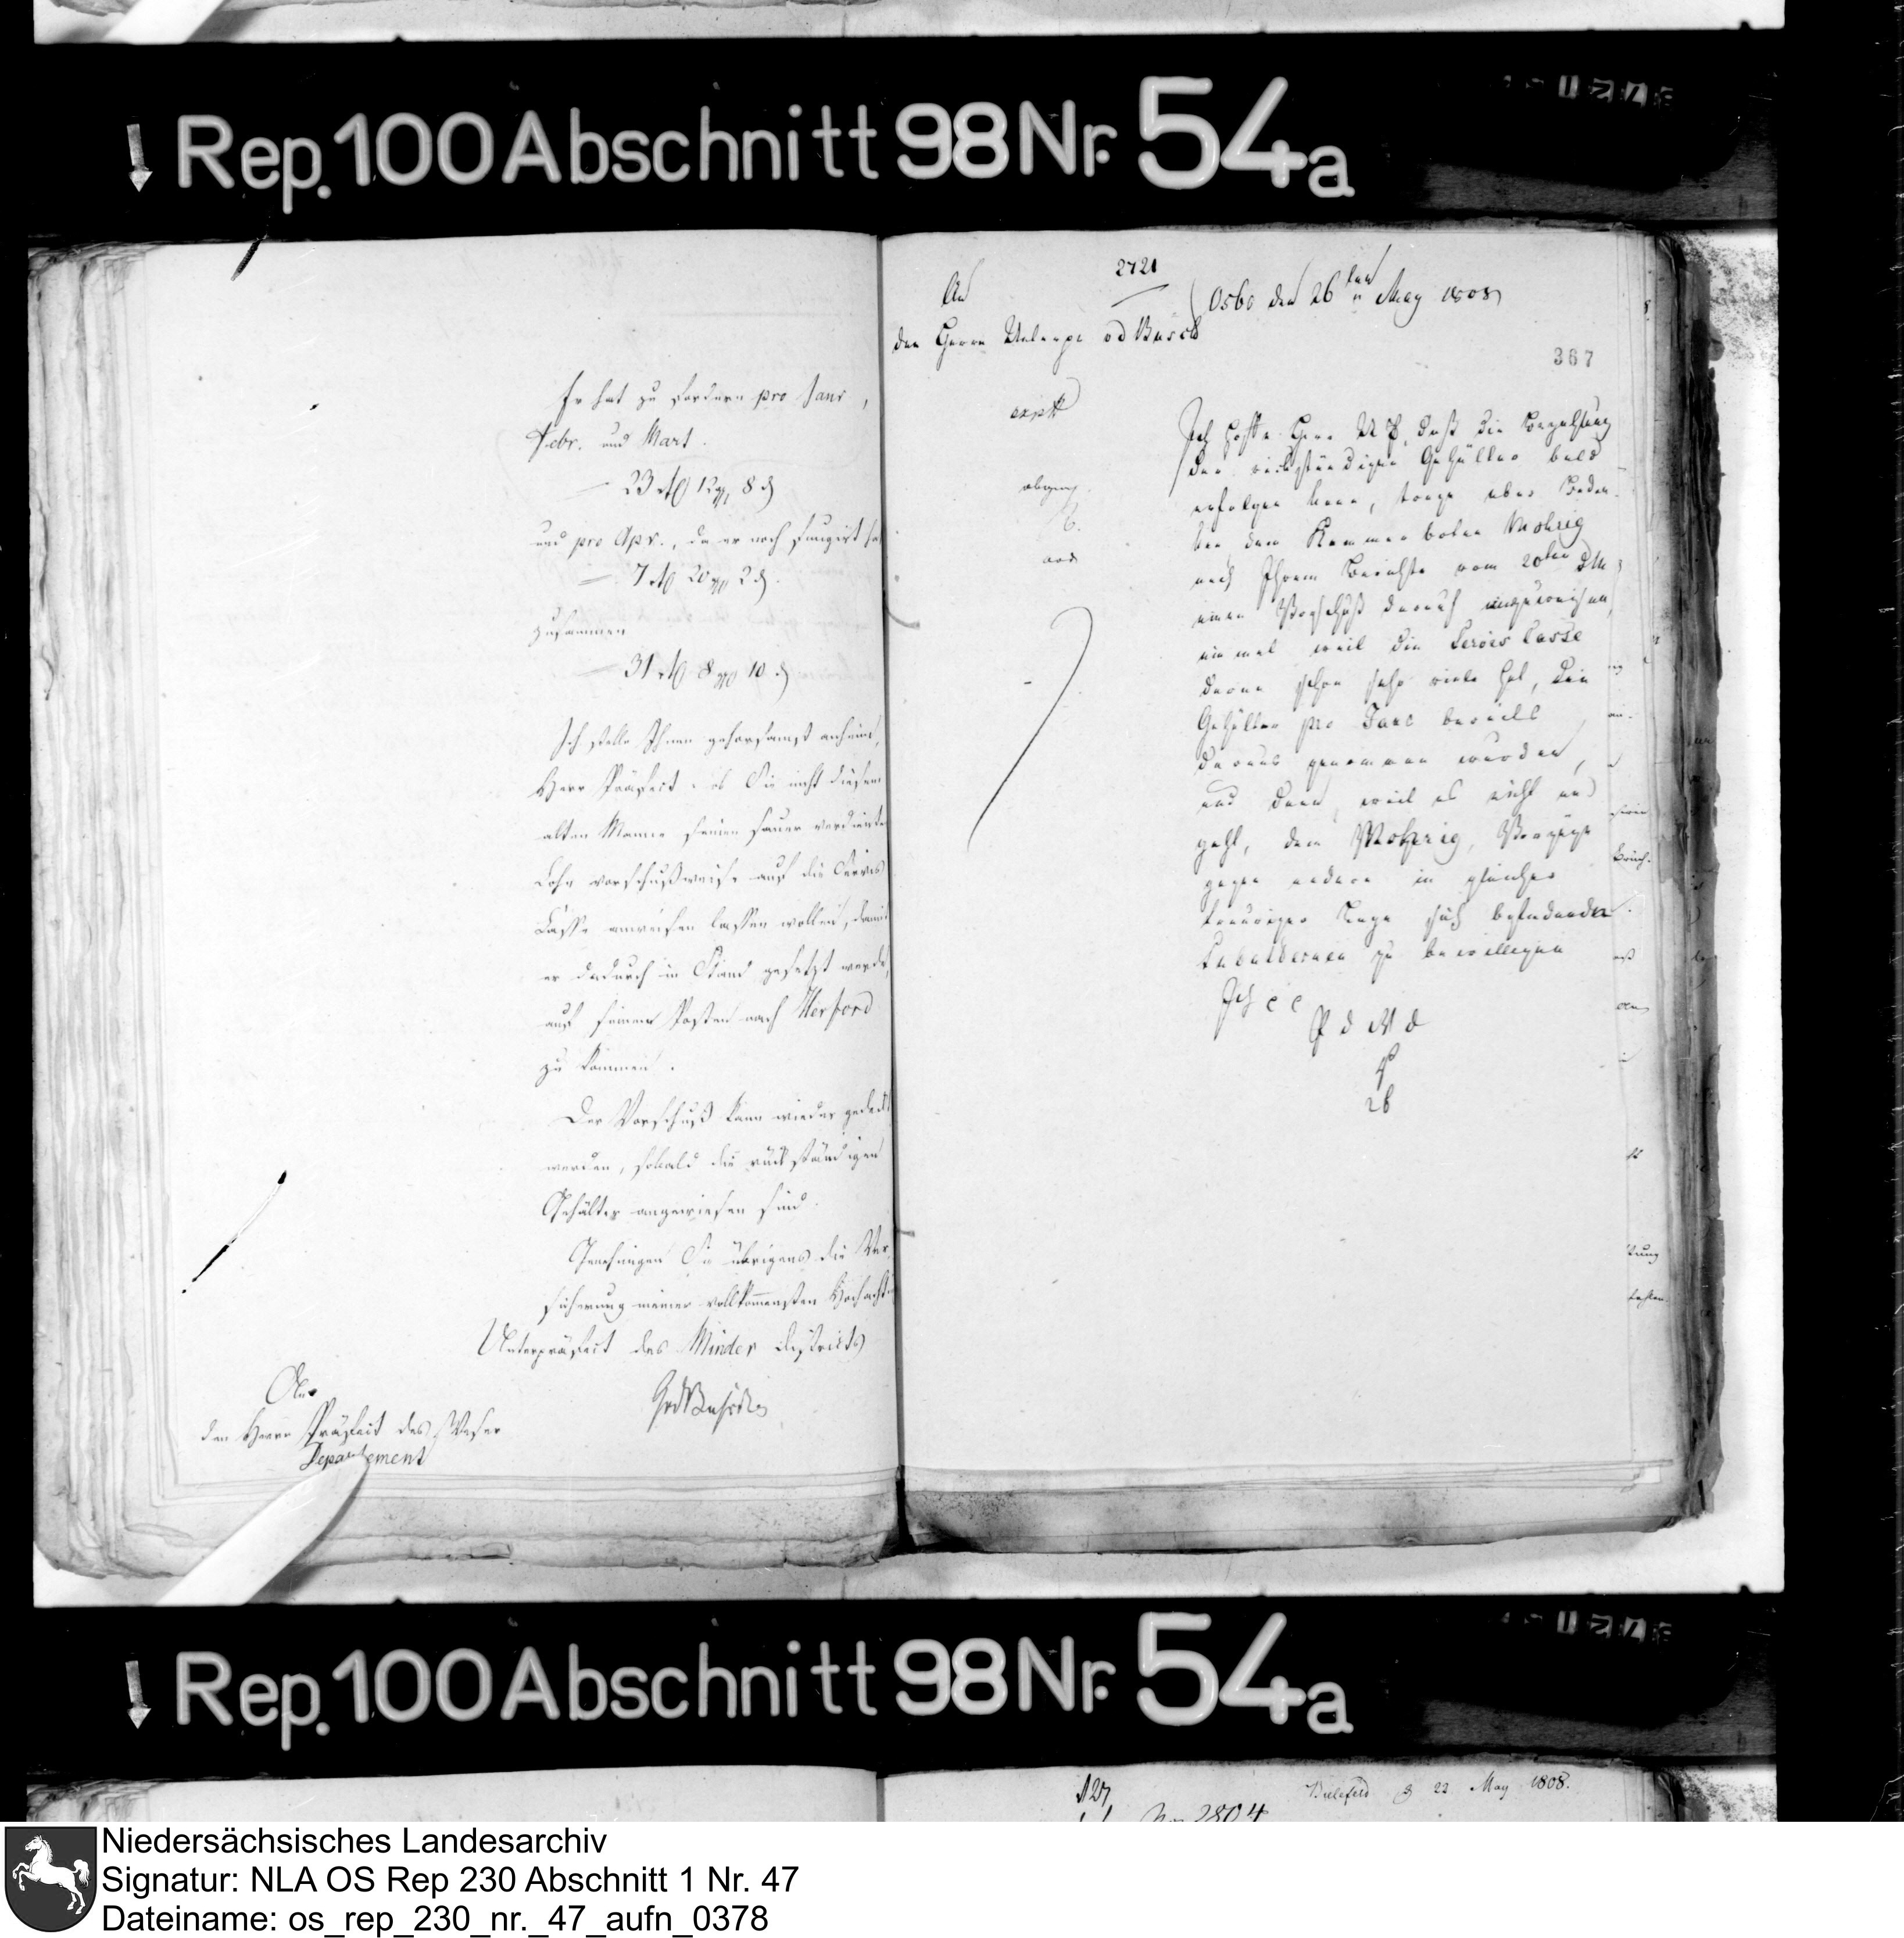 Rep. 100 Abschnitt 98 Nr. 54a
Er hat zu fordern pro Janr,
Febr. und Mart.
— 23 rt 12 gg 8 d
und pro Apr., da er noch fungirt
— 7 rt 20 gg 2 d.
zusammen
— 31 rt 8 gg 10 d
Ich stelle Ihnen gehorsamst anheim,
Herr Präfect, ob Sie nicht diesem
alten Manne seinen sauer verdienten
Lohn vorschußweise auf die Servis
Casse anweisen lassen wollen, damit
er dadurch in Stand gesetzt werde,
auf seinen Posten nach Herford
zu kommen.
Der Vorschuß kann wieder gedeckt
werden, sobald die rückständigen
Gehälter angewiesen sind.
Genehmigen Sie übrigens die Ver-
sicherung meiner vollkommensten Hochacht
Unterpräfect des Minder Districts
An
den Herrn Präfect des Weser
Departement
2721
An
den Herrn Unterpr
Osbr den 26ten May 1808
367
expt
Ich hoffe Herr U P, daß die Bezahlung
der rückständigen Gehälter bald
erfolgen kann, trage aber Beden-
ken dem Kammerboten Mohrig
nach Ihrem Berichte vom 20ten d M
einen Vorschuß darauf anzuweisen,
einmal weil die Servis Casse
daran schon sehr viele hat, die
Gehälter pro Janr bereits
daraus genommen wurden,
und dann, weil es nicht an
geht, dem Mohrig, Vorzüge
gegen andere in gleicher
trauriger Lage sich befindende
Subalternen zu bewilligen
Ich
P d W D
26
Rep. 100 Abschnitt 98 Nr. 54a
Bielefeld d 22 May 1808.
2804
Niedersächsisches Landesarchiv
Signatur: NLA OS Rep 230 Abschnitt 1 Nr. 47
Dateiname: os_rep_230_nr._47_aufn_0378